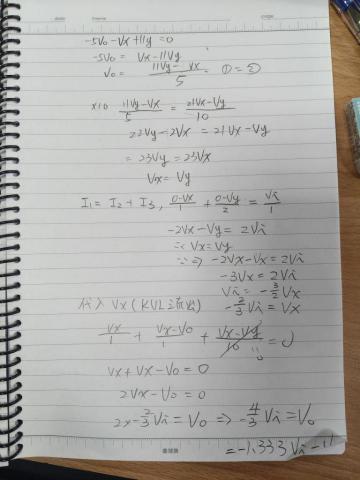 -5V₀ - Vx + 11Vy = 0
-5V₀ = Vx - 11Vy
V₀ = (11Vy - Vx)/5 ①=②
x10 (11Vy-Vx)/5 = (21Vx-Vy)/10
22Vy - 2Vx = 21Vx - Vy
= 23Vy = 23Vx
Vx = Vy
I₁ = I₂ + I₃, (0-Vx)/1 + (0-Vy)/2 = Vi/1
-2Vx - Vy = 2Vi
∵ Vx = Vy
∴ ⇒ -2Vx - Vx = 2Vi
-3Vx = 2Vi
Vi = -3/2 Vx
代入 Vx (KVL -2/3 Vi = Vx
Vx/1 + (Vx-V₀)/1 + (Vx-Vy)/10 = 0
Vx + Vx - V₀ = 0
2Vx - V₀ = 0
2x -2/3 Vi = V₀ ⇒ -4/3 Vi = V₀
= -1.333 Vi